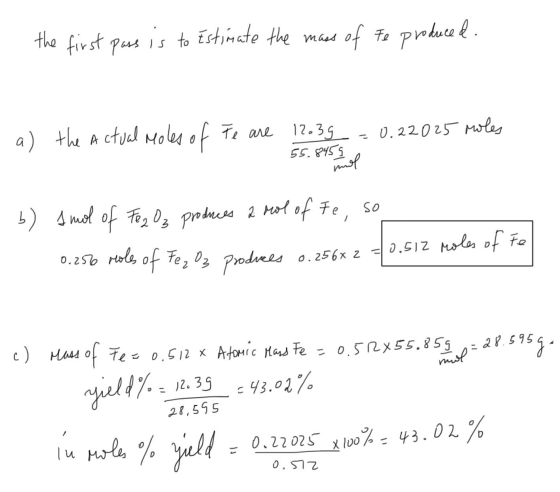 the first pass is to Estimate the mass of Fe produced.
a) the Actual Moles of Fe are 12.3g / 55.845 g/mol = 0.22025 moles
b) 1 mol of Fe2O3 produces 2 mol of Fe, so
0.256 moles of Fe2O3 produces 0.256 x 2 = 0.512 moles of Fe
c) Mass of Fe = 0.512 x Atomic Mass Fe = 0.512 x 55.85 g/mol = 28.595g.
yield % = 12.3g / 28.595 = 43.02%
in moles % yield = 0.22025 / 0.512 x 100% = 43.02 %